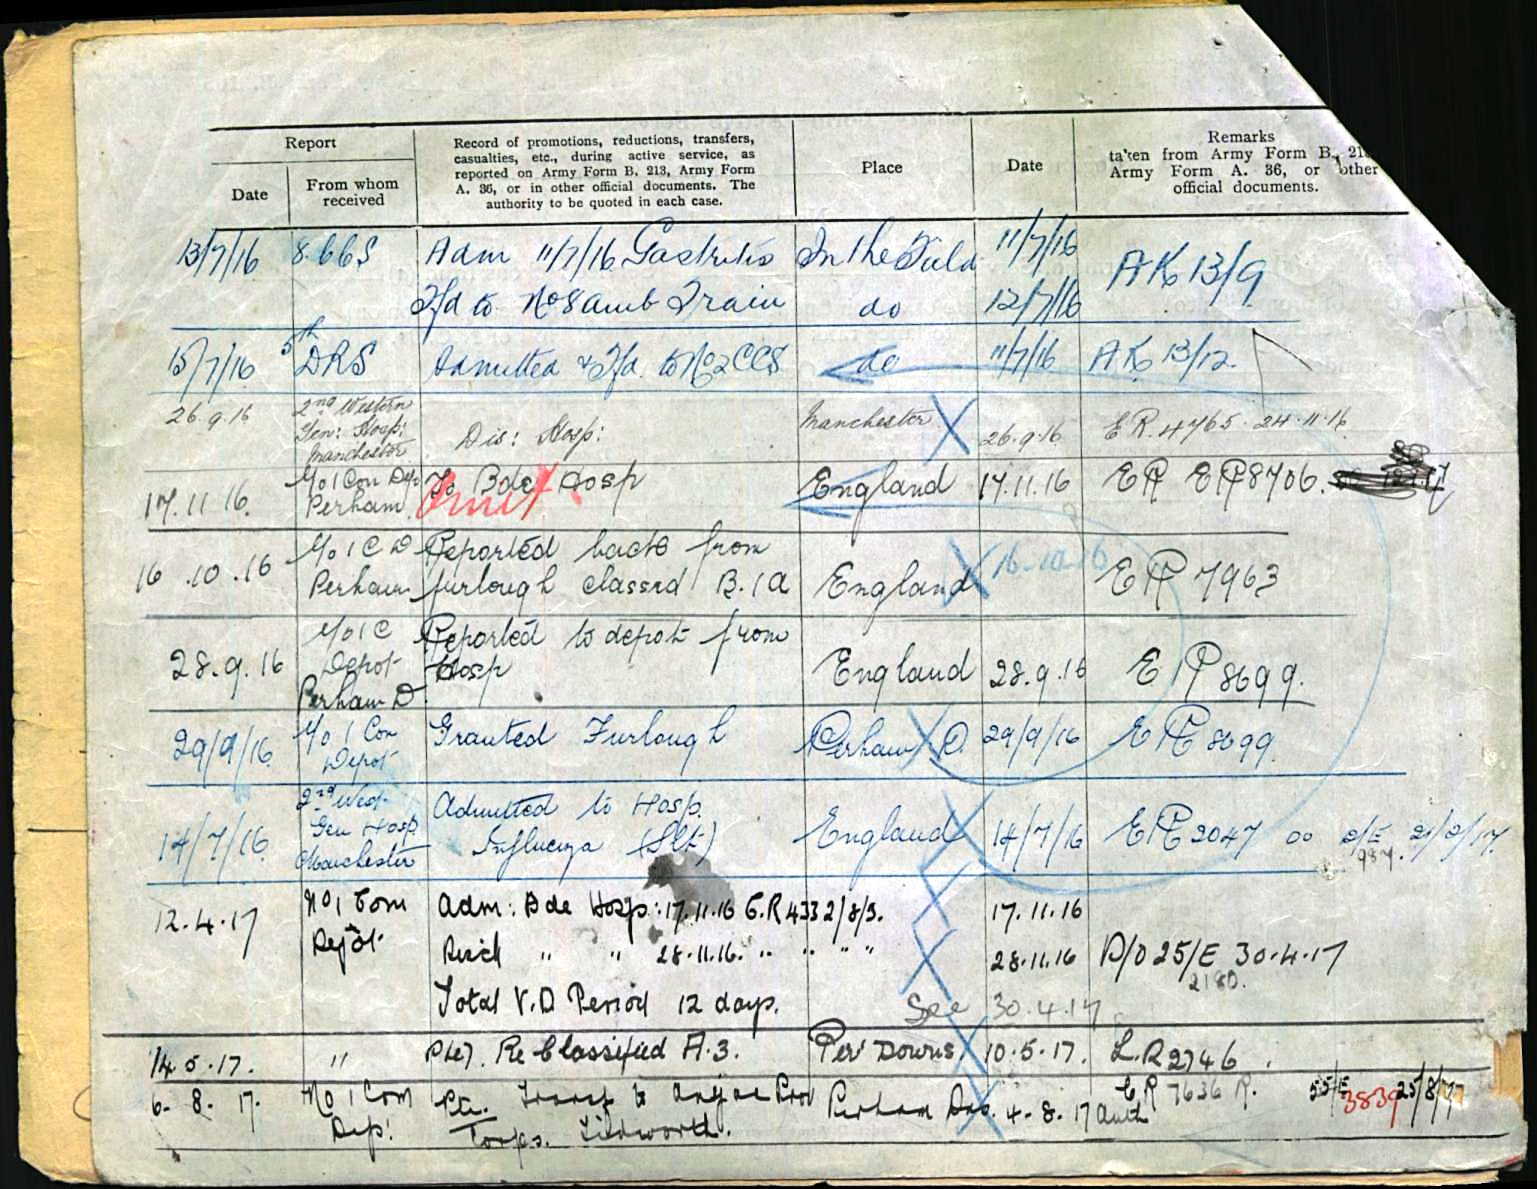 Report
Record of promotions, reductions, transfers,
casualties, etc., during active service, as
reported on Army Form B. 213, Army Form
A. 36, or in other official documents. The
authority to be quoted in each case.
Place
Date
Remarks
taken from Army Form B. 21
Army Form A. 36, or other
official documents.
Date
From whom
received
13/7/16 8. CCS Adm 11/7/16 Gastritis In the Field 11/7/16 AK 13/9
Tfd to No 8 Amb Train do 12/7/16
15/7/16 5th DRS Admitted & Tfd. to No 2 CCS do 11/7/16 AK 13/12.
26.9.16 2nd Western
Gen: Hosp:
Manchester
Dis: Hosp: Manchester 26.9.16 ER. 4765. 24.11.16
17.11.16. No 1 Con Dep
Perham
To Bde Hosp England 17.11.16 ER 8706.
Omit
16.10.16 No 1 C D
Perham
Reported back from
furlough classed B.1A England 16.10.16 ER 7963
28.9.16 No 1 C
Depot
Perham D.
Reported to depot from
Hosp England 28.9.16 ER 8699.
29/9/16 No 1 Con
Depot
Granted Furlough Perham D. 29/9/16 ER 8699
14/7/16. 2nd West
Gen Hosp
Manchester
Admitted to Hosp.
Influenza (Slt) England 14/7/16 ER 2047 21/2/17
12.4.17 No 1 Con
Depôt
Adm: Bde Hosp: 17.11.16 C.R 4332/8/3. 17.11.16
Disch " " 28.11.16. " " " " 28.11.16 D/O 25/E 30.4.17
2180.
Total V.D Period 12 days. See 30.4.17
14.5.17. " Re Classified A.3. Per Downs. 10.5.17. L.R 2746.
6.8.17. No 1 Com
Dep!
Pte. Transf to Prov Perham Dns. 4.8.17 auth C.R 7636 R. 55/E 3839 25/8/17
Corps. Tidworth.